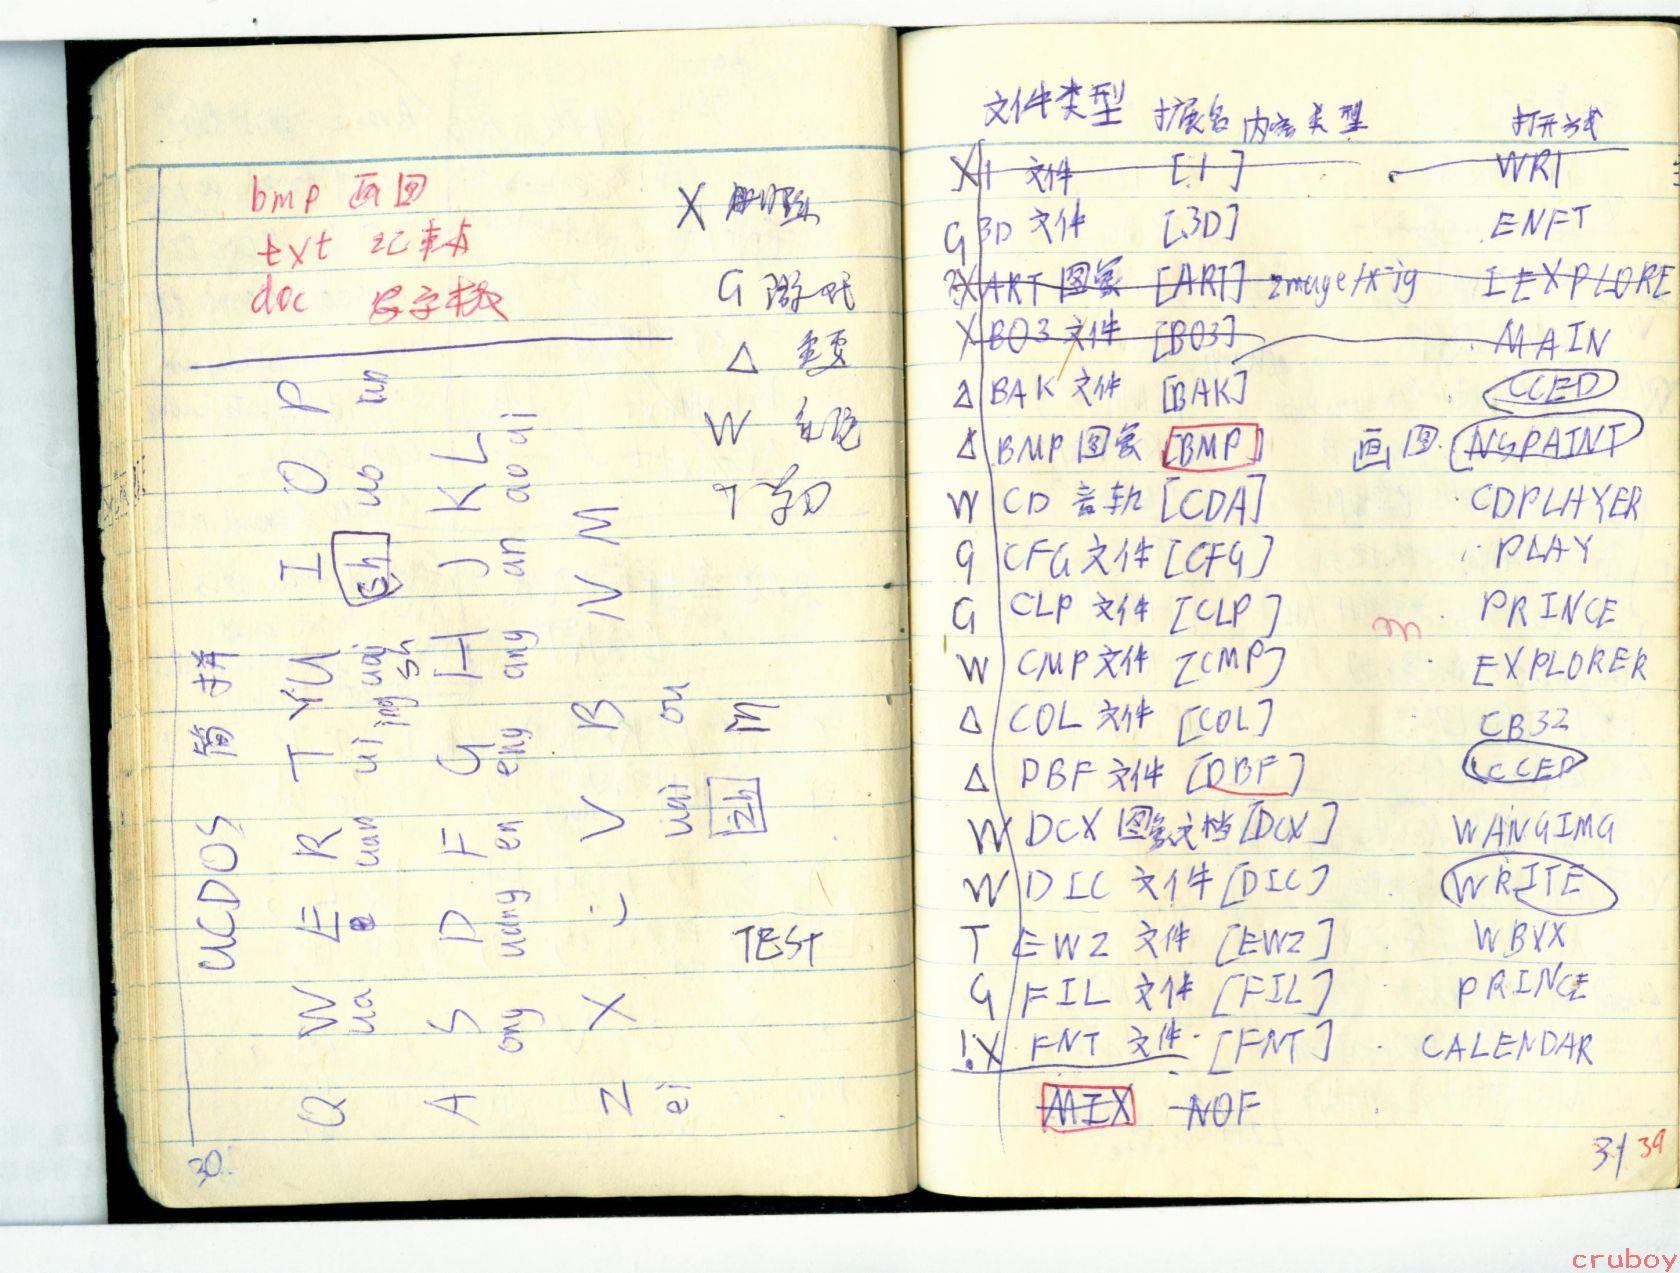 bmp 画图
txt 记事本
doc 写字板
X 删除
G 游戏
△ 重要
W 系统
学习
UCDOS 简拼
Q W E R T Y U I O P
ua uan ui ing uai sh sh uo un
A S D F G H J K L
ong uang en eng ang an ao ai
Z X C V B N M
ei uai ou
zh in
TEST
30
文件类型 扩展名 内容类型 打开方式
X 1 文件 [.1] WRI
G 3D 文件 [.3D] ENFT
?X ART 图象 [ART] image/x-jg IEXPLORE
X BO3 文件 [BO3] MAIN
△ BAK 文件 [BAK] CCED
△ BMP 图象 [BMP] 画图 NSPAINT
W CD 音轨 [CDA] CDPLAYER
G CFG 文件 [CFG] PLAY
G CLP 文件 [CLP] PRINCE
W CMP 文件 [CMP] EXPLORER
△ COL 文件 [COL] CB32
△ DBF 文件 [DBF] CCED
W DCX 图象文档 [DCX] WANGIMG
W DIC 文件 [DIC] WRITE
T EWZ 文件 [EWZ] WBXX
G FIL 文件 [FIL] PRINCE
!X FNT 文件 [FNT] CALENDAR
MIX NOF
31 39
cruboy